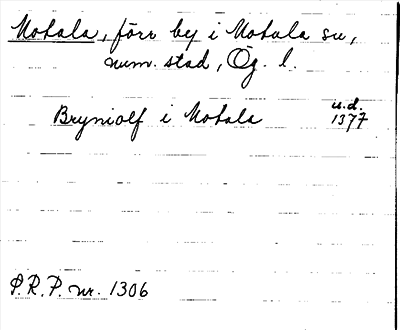 Motala, förr by i Motala sn,
num. stad, Ög. l.
Bryniolf i Motala u.d. 1377
P.R.P. nr. 1306